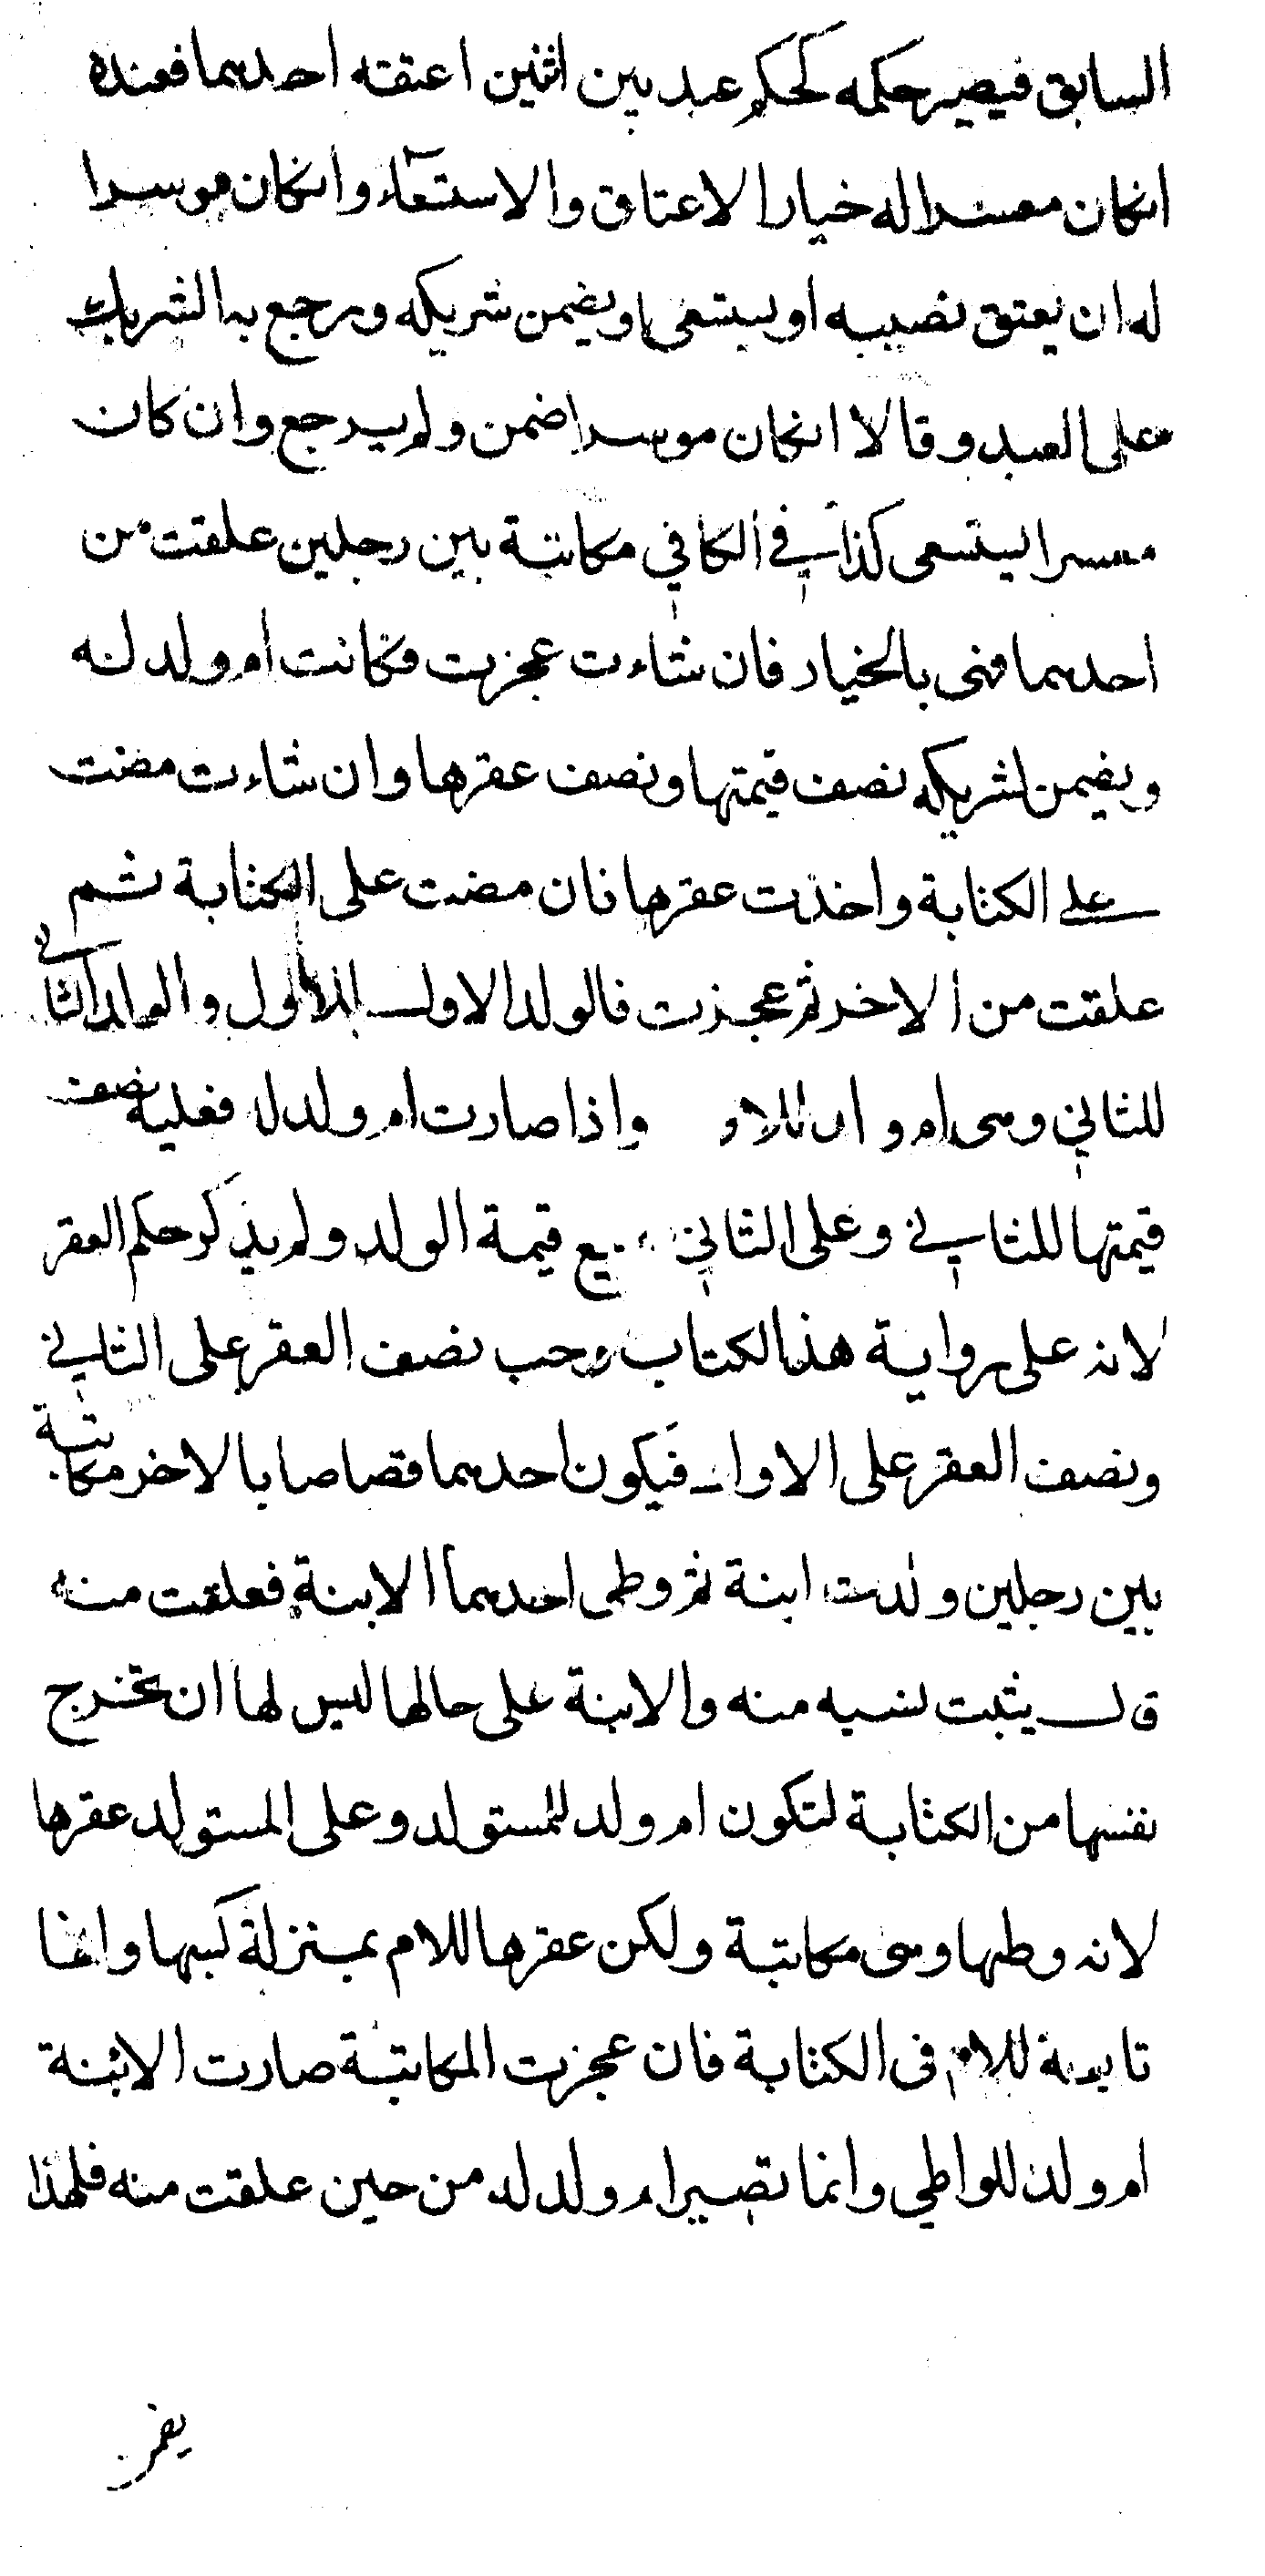 السابق فيصير حكمه كحكم عبد بين اثنين اعتقه احدهما فعنده
انكان معسرا له خيار الاعتاق والاستسعاء وانكان موسرا
له ان يعتق نصيبه او يستسعى او يضمن شريكه ويرجع به الشريك
على العبد وقالا انكان موسرا ضمن ولم يرجع وان كان
معسرا يستسعى كذا في الكافي مكاتبة بين رجلين علقت من
احدهما فهي بالخيار فان شاءت عجزت فكانت ام ولد له
ويضمن لشريكه نصف قيمتها ونصف عقرها وان شاءت مضت
على الكتابة واخذت عقرها فان مضت على الكتابة ثم
علقت من الاخر ثم عجزت فالولد الاول للاول والولد الثاني
للثاني وهي ام ولد للاول واذا صارت ام ولد له فعليه نصف
قيمتها للثاني وعلى الثاني جميع قيمة الولد ولم يذكر حكم العقر
لانه على رواية هذا الكتاب وجب نصف العقر على الثاني
ونصف العقر على الاول فيكون احدهما قصاصا بالاخر مكاتبة
بين رجلين ولدت ابنة ثم وطى احدهما الابنة فعلقت منه
قال يثبت نسبه منه والابنة على حالها ليس لها ان تخرج
نفسها من الكتابة لتكون ام ولد للمستولد وعلى المستولد عقرها
لانه وطئها وهي مكاتبة ولكن عقرها للام بمنزلة كسبها وانها
تابعة للام في الكتابة فان عجزت المكاتبة صارت الابنة
ام ولد للواطي وانما تصير ام ولد له من حين علقت منه فلهذا